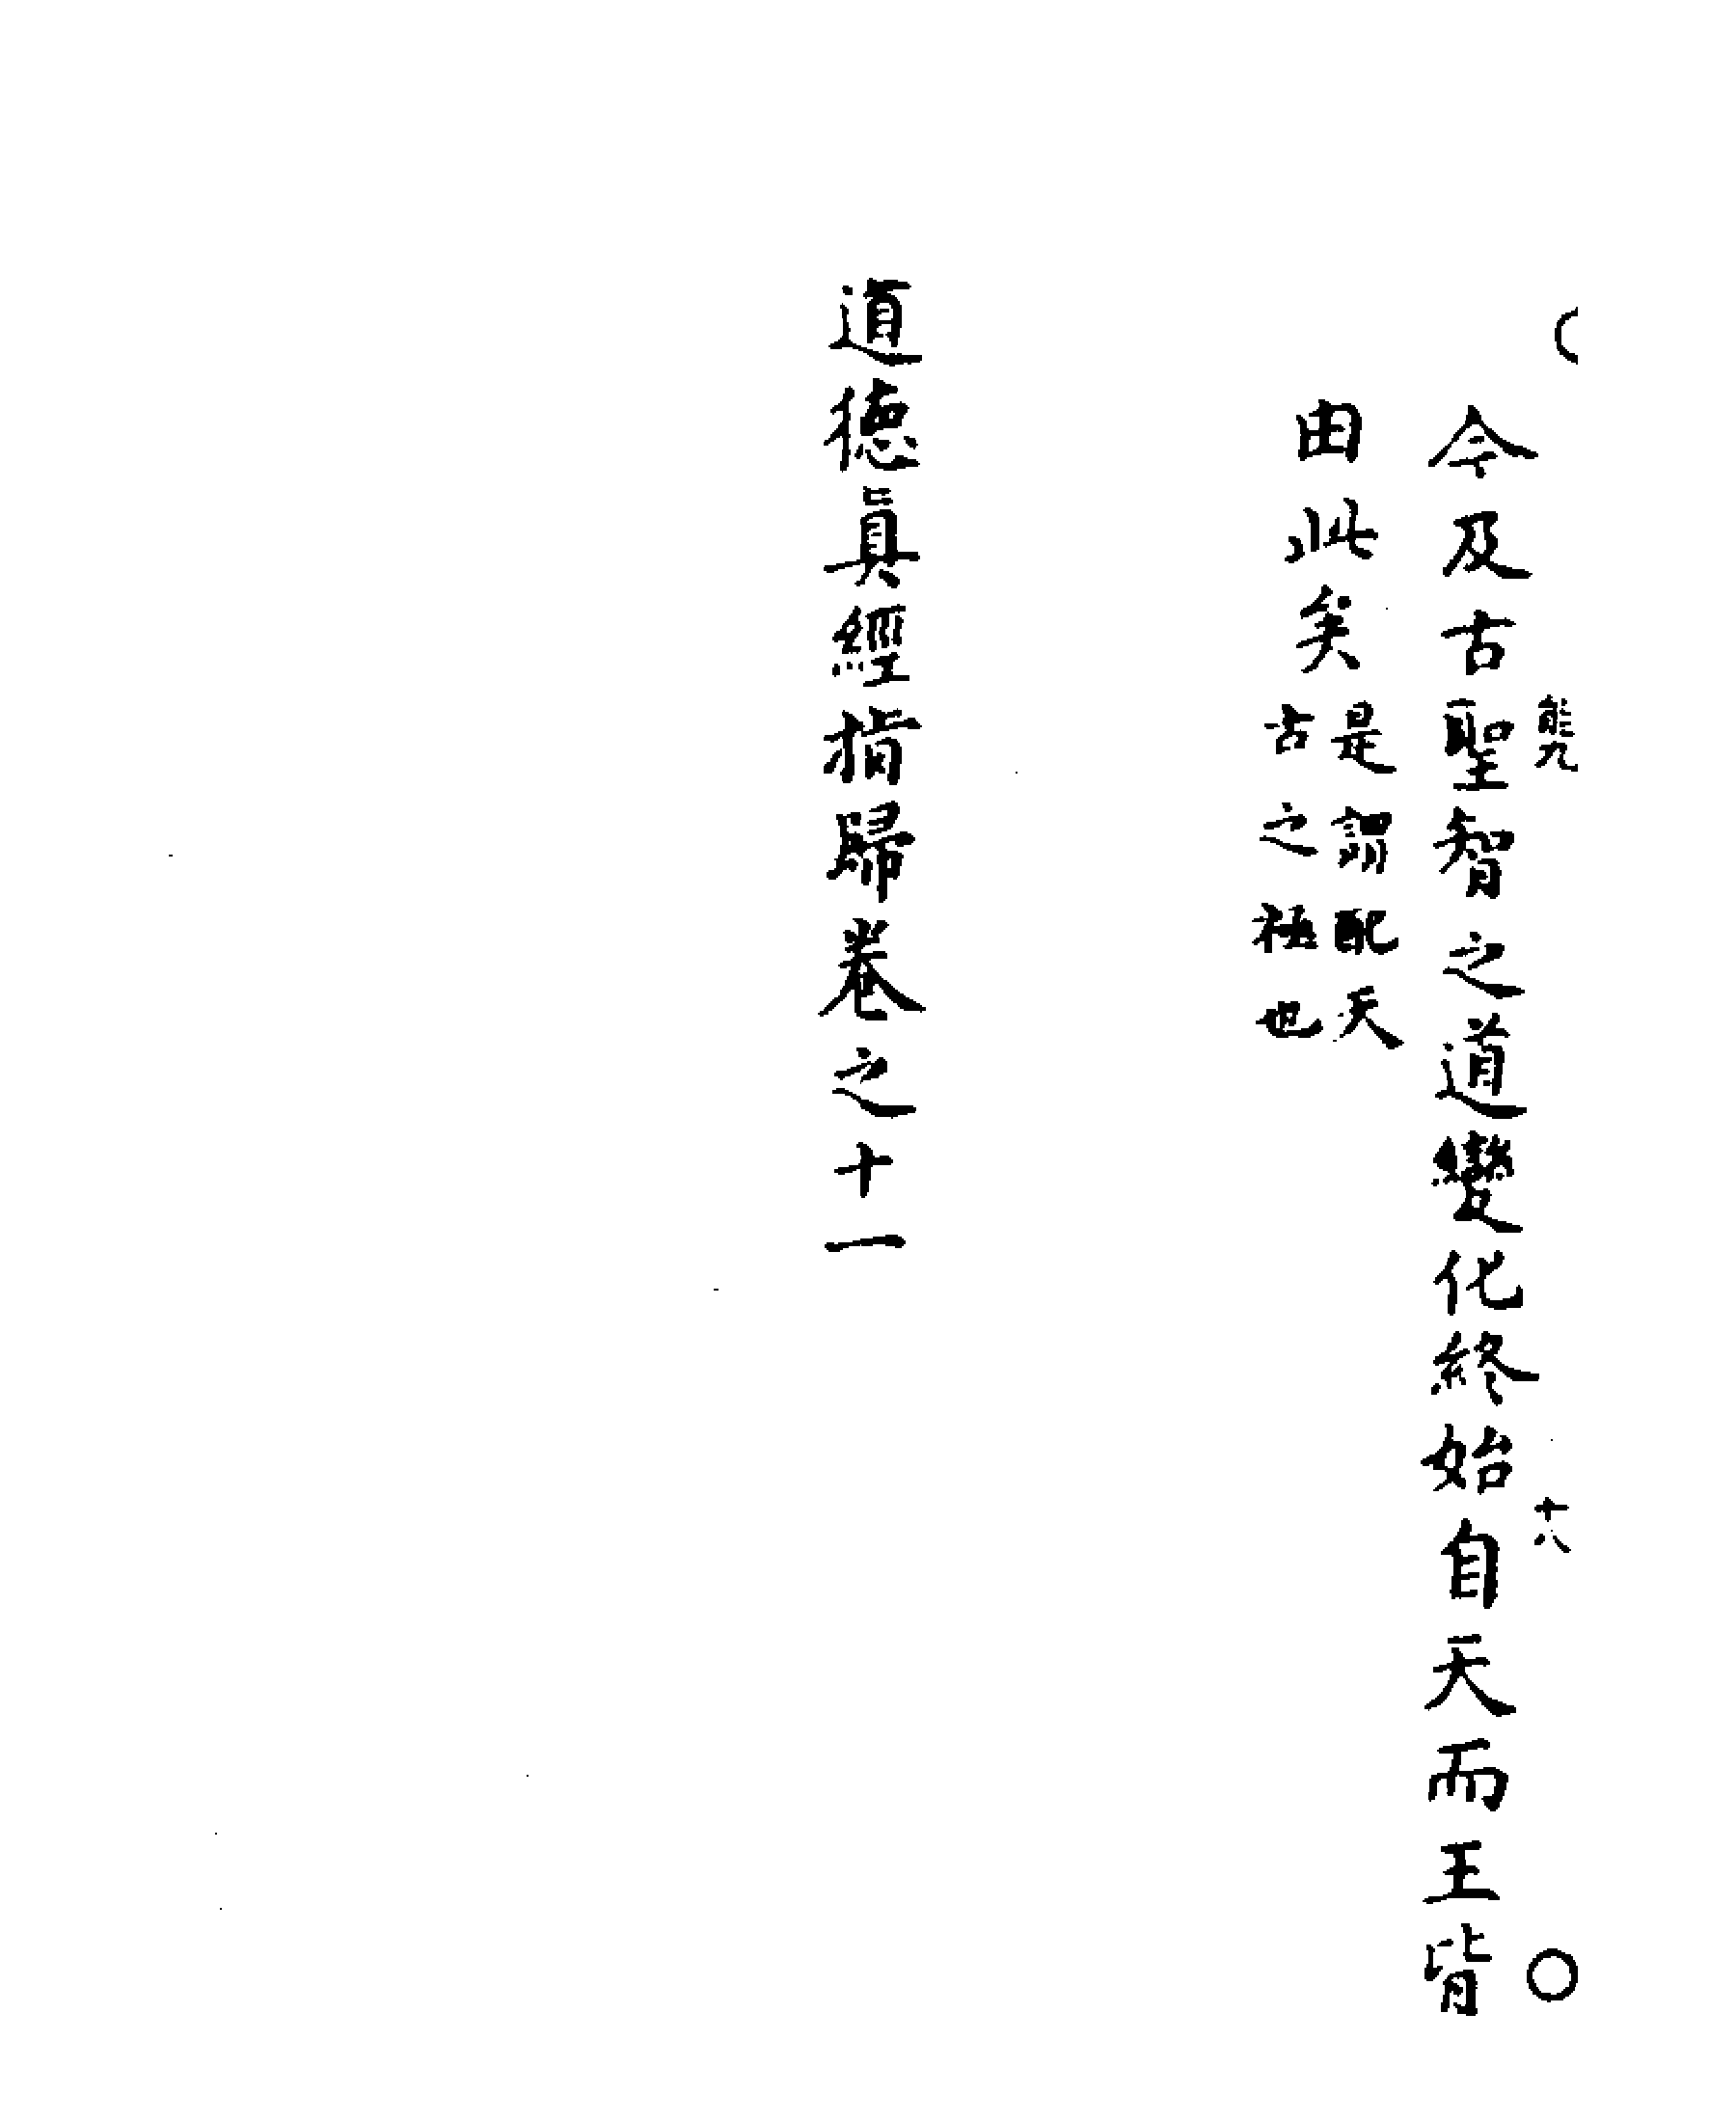 能九 十八
今及古聖智之道變化終始自天而王皆
由此矣是謂配天古之極也
道德真經指歸卷之十一